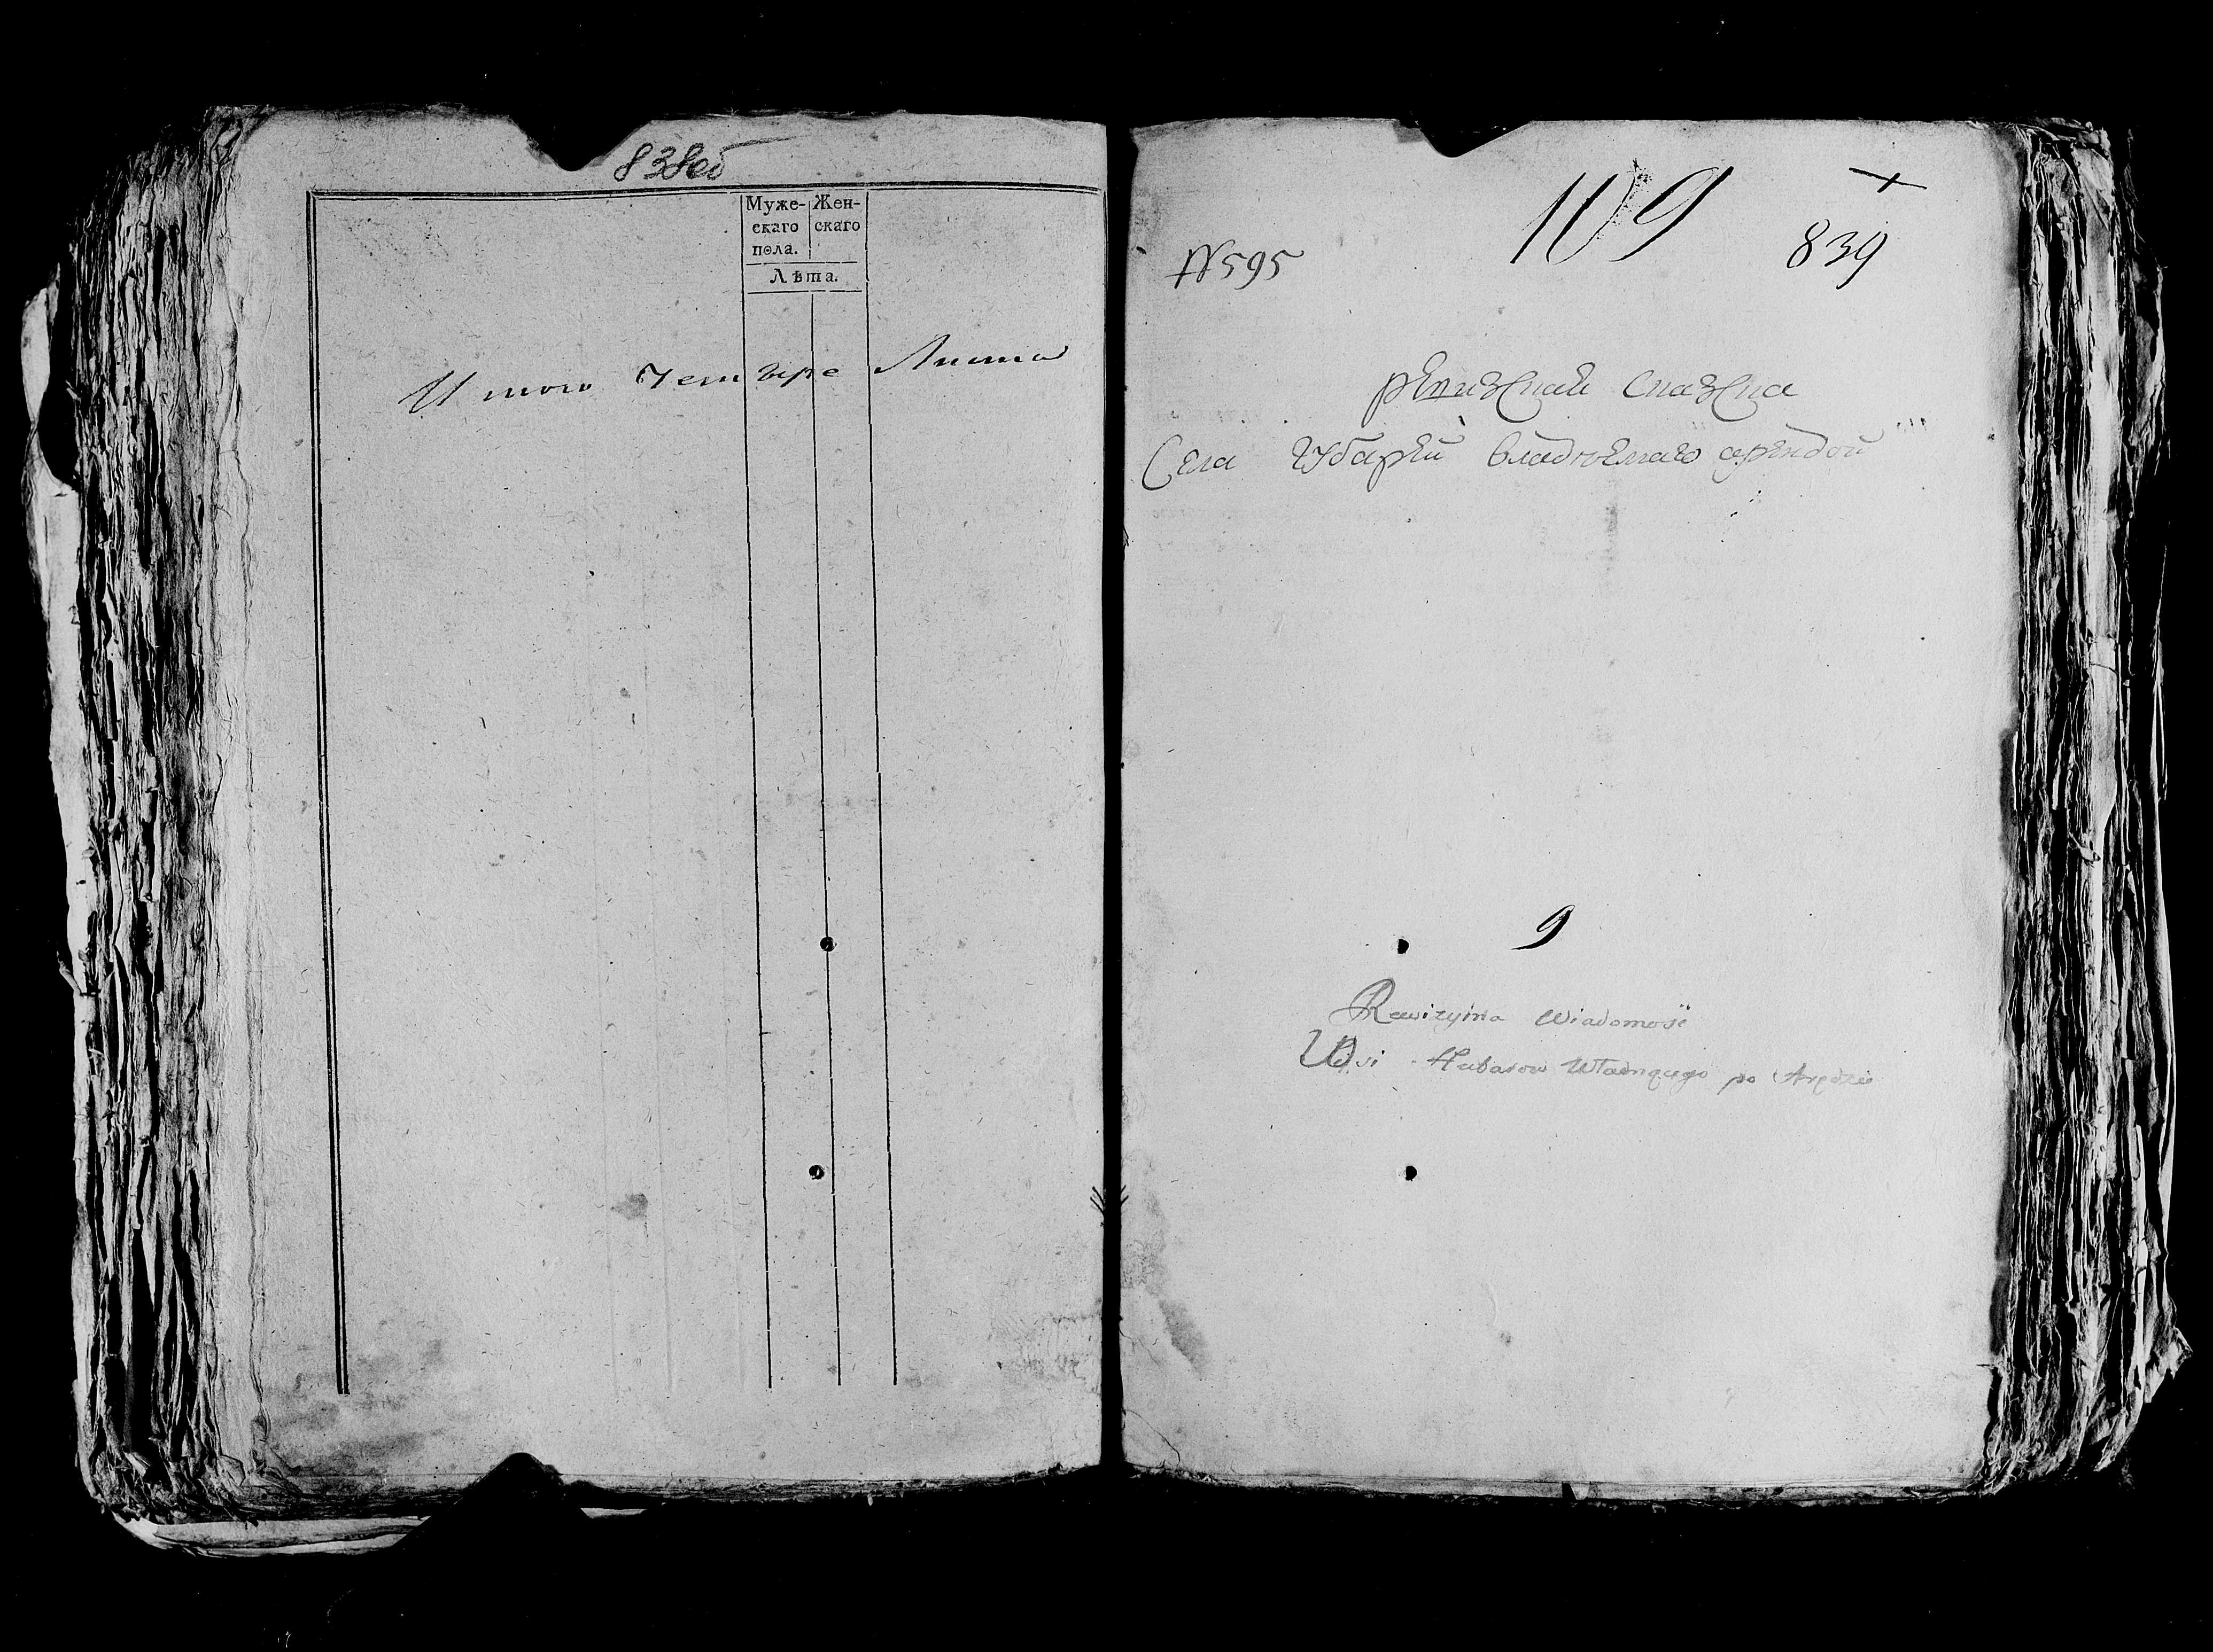 838об
Муже- Жен-
скаго скаго
пола.
Лѣта.
Итого Четыре Листа
109
839
№ 595
ревизская сказка
Села Губарей владѣемаго арендой
9
Rewizyina Wiadomość
Wsi Hubarow Władnącego po Arędzie